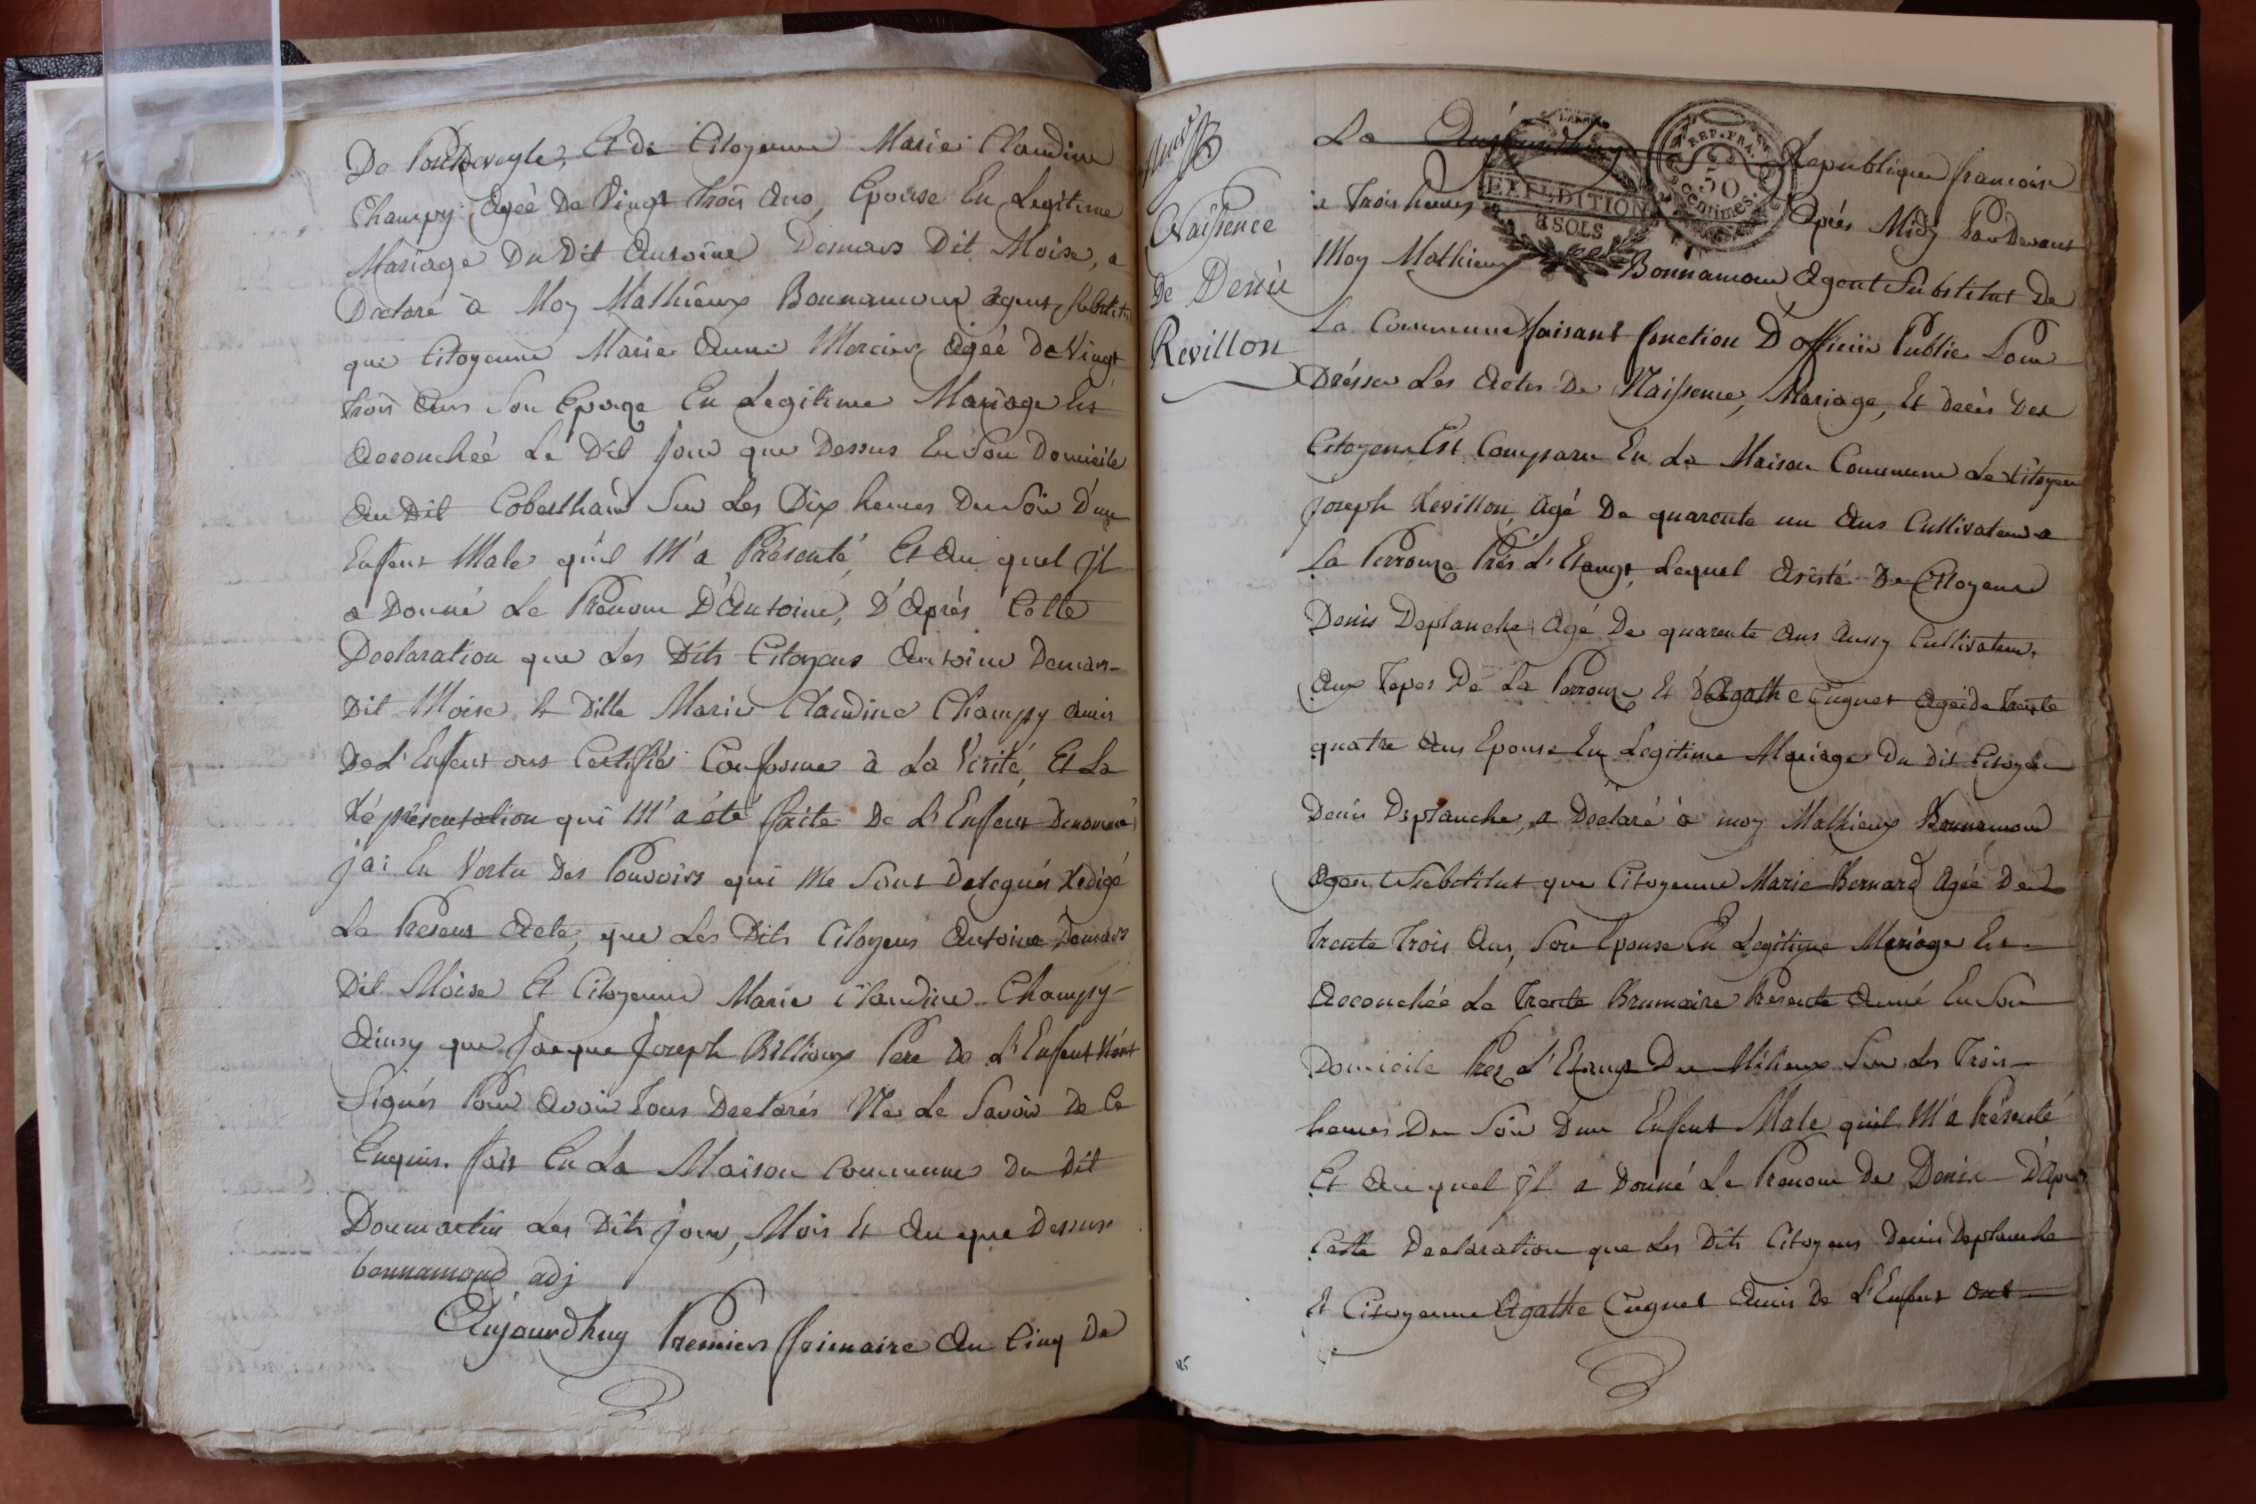 De Pontdeveyle, Et de Citoyenne Marie Claudine
Champy Ageé De Vingt trois Ans, Epouse En Legitime
Mariage Du Dit Antoine Demars Dit Moise, a
Declaré à Moy Mathieux Bonnamour agent substitut
que Citoyenne Marie Anne Mercier Ageé De Vingt
trois Ans Son Epouse En Legitime Mariage Est
Accouchéé Le Dit jour que Dessus En Son Domicile
Au Dit Coberthaud Sur Les Dix heures Du Soir D'un
Enfent Male qu'il M'a Présenté, Et Au quel jl
a Donné Le Prenom D'Antoine, D'Aprés Cette
Declaration que Les Dits Citoyens Antoine Demars
Dit Moise Et Ditte Marie Claudine Champy Amis
De L'Enfent ont Certifiés Conforme à La Vérité, Et La
Représentation qui M'a été faite De L'Enfent Denommé
j'ai En Vertu Des Pouvoirs qui Me Sont Delegués Redigé
Le Present Acte, que Les Dits Citoyens Antoine Demars
Dit Moise Et Citoyenne Marie Claudine Champy
Ainsy que Jacque Joseph Billioux Pere De L'Enfent N'ont
Signés Pour Avoir Tous Declarés Ne Le Savoir De Ce
Enquis. fait En La Maison Commune Du Dit
Dommartin Les Dits jour, Mois Et An que Dessus
bonnamour adj
Aujourdhuy Premier frimaire An Cinq De
Naissence
De Denis
Revillon
La Republique francoise
a Trois heures Aprés Midy Par Devant
EXPEDITION
3 SOLS
REP. FRA.
50
Centimes
Moy Mathieux Bonnamour Agent Substitut De
La Commune faisant fonction D'officier Public Pour
Drésser Les Actes De Naissence, Mariage, Et decès Des
Citoyens Est Comparu En La Maison Commune Le Citoyen
Joseph Revillon Agé De quarente un Ans Cultivateur a
La Perrouze Prés L'Etangt, Lequel Asisté De Citoyens
Denis Deplanche Agé De quarente Ans Aussy Cultivateur
Aux Tepes De La Perrouze Et D'Agathe Cugnet Agéé De Trente
quatre Ans Epouse En Legitime Mariage Du Dit Citoyen
Denis Deplanche, a Déclaré à moy Mathieux Bonnamour
Agent Substitut que Citoyenne Marie Bernard Ageé De
trente Trois Ans, Son Epouse En Legitime Mariage Est
Accouchée Le Trente Brumaire Présente Anné En Son
Domicile Prez L'Etangt Du Milieux Sur Les Trois
heures Du Soir D'un Enfent Male quil M'a Présenté
Et Au quel jl a Donné Le Prenom De Denis D'Aprés
Cette Declaration que Les Dits Citoyens Denis Deplanche
Et Citoyenne Agathe Cugnet Amis De L'Enfent ont